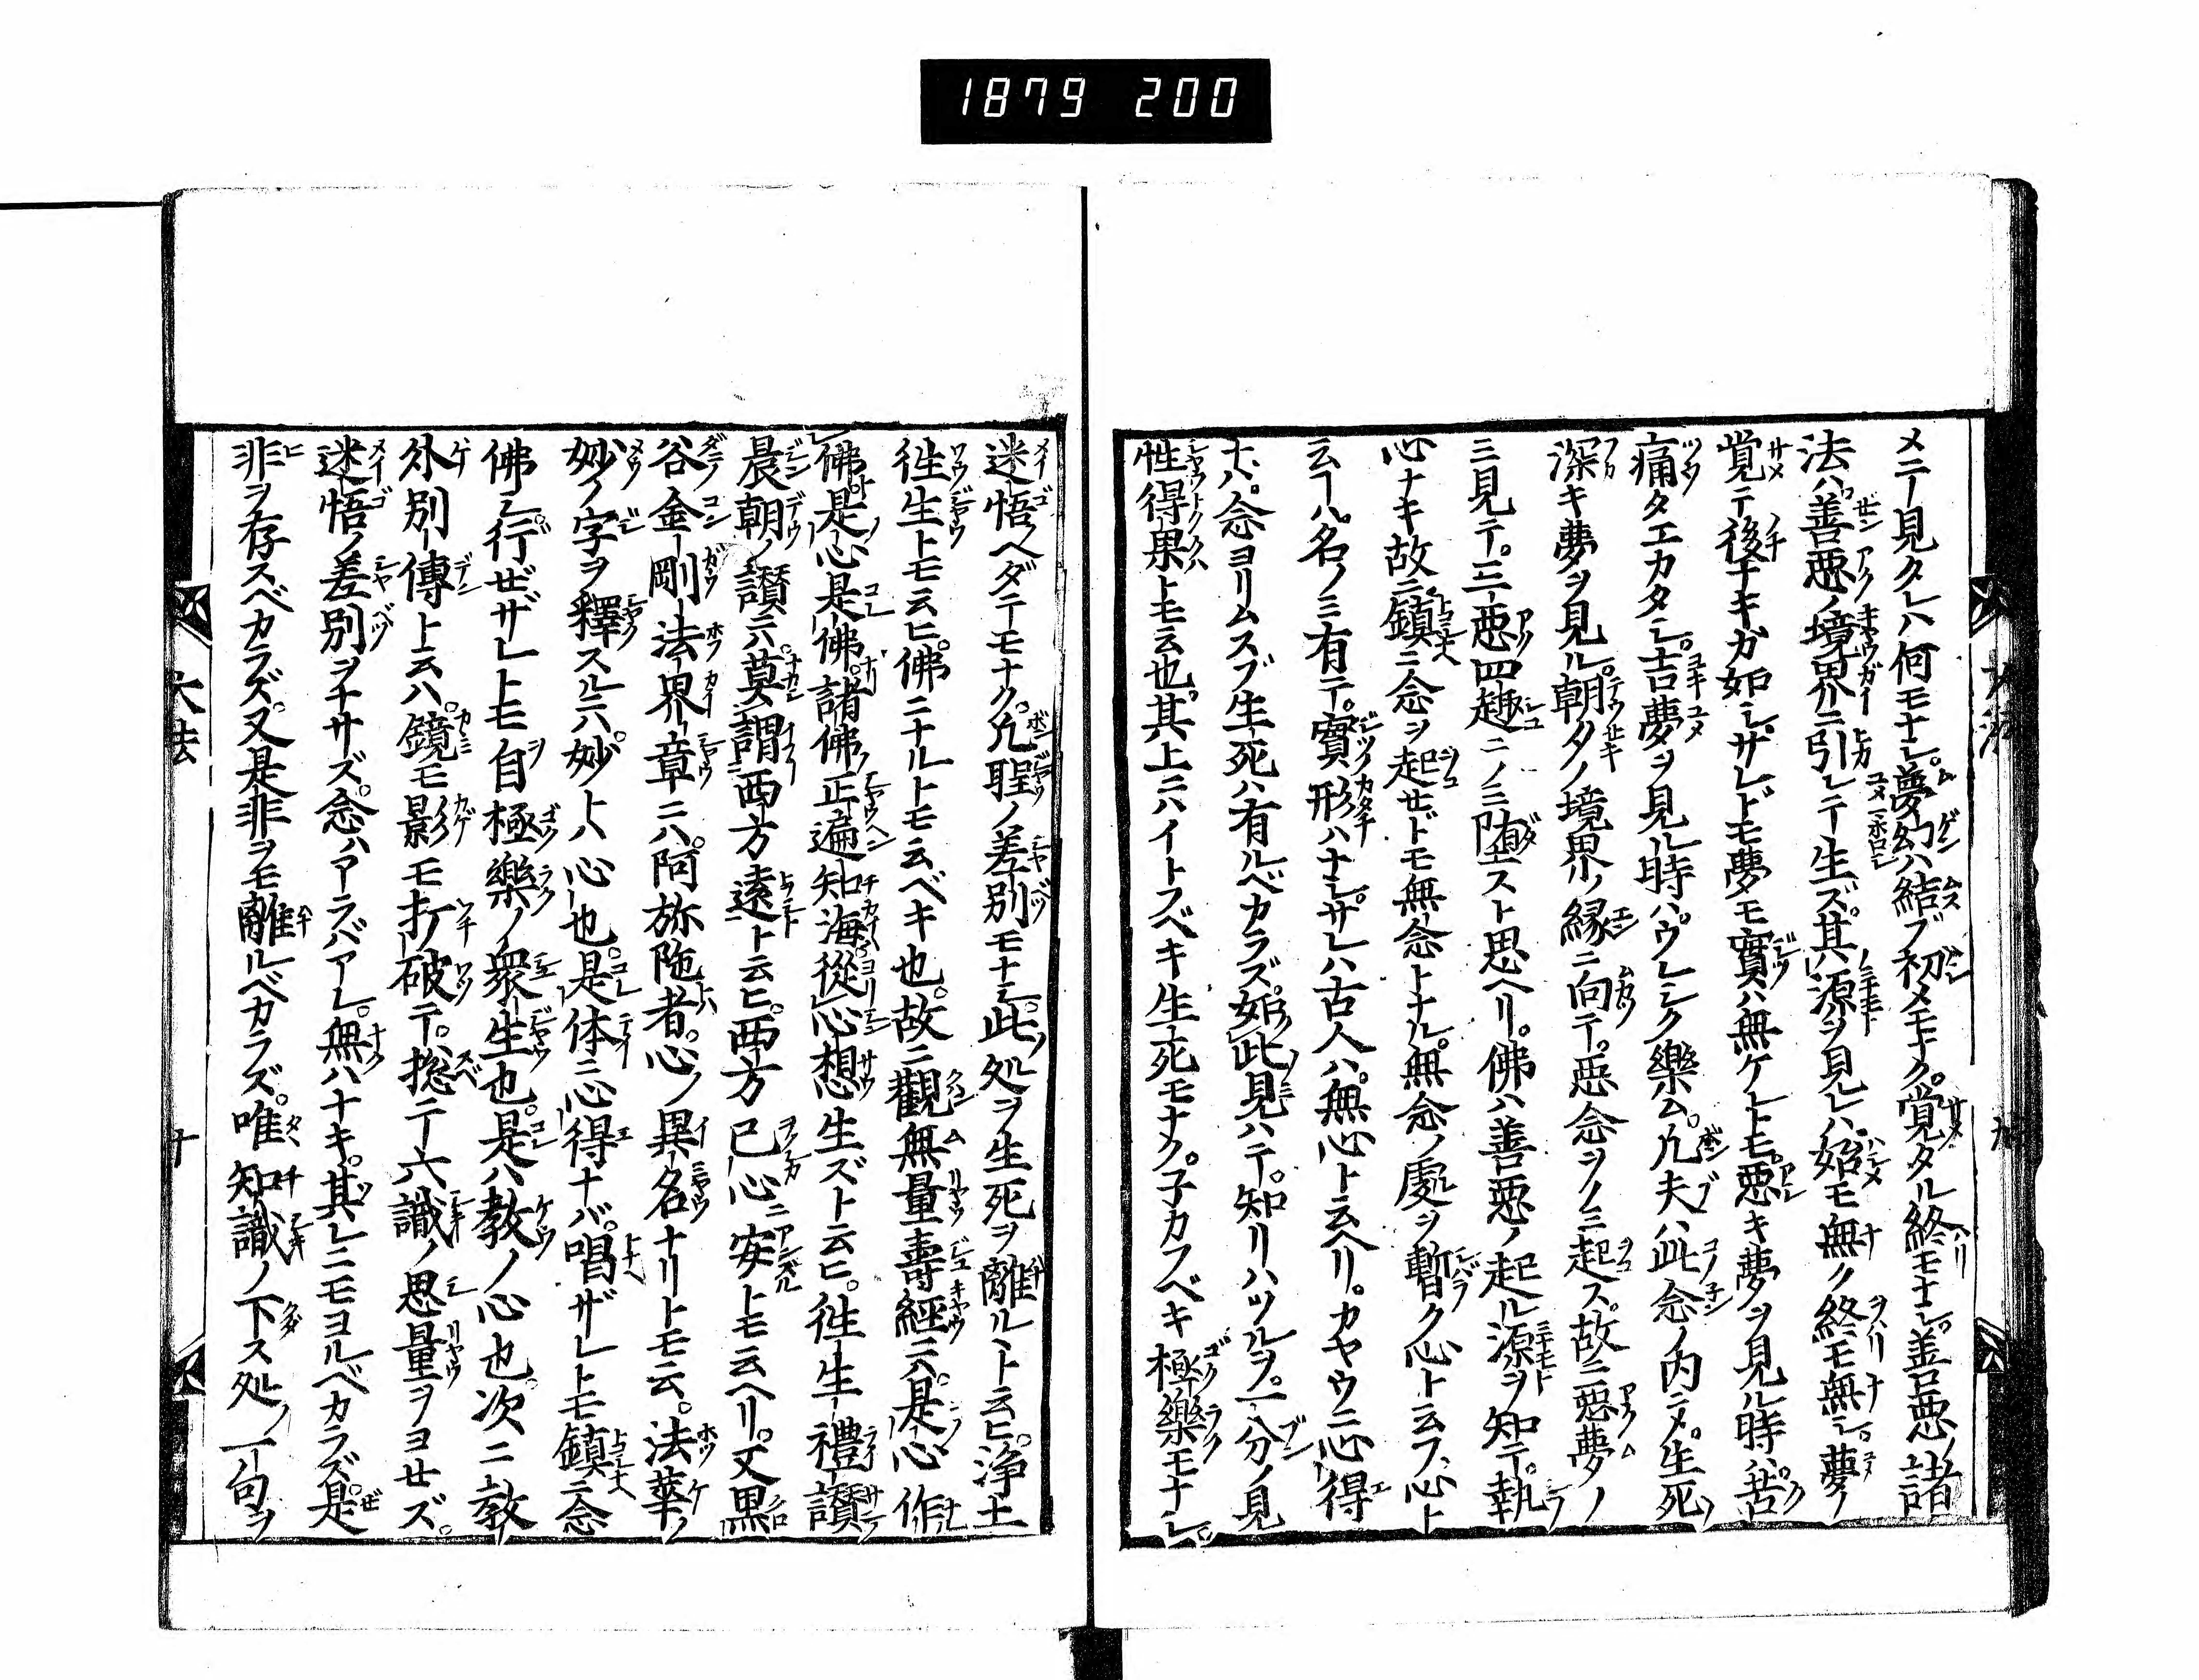 1879 200
メニ一見タレハ何モナシ。夢幻ハ結ブ初メモナク。覚タル終モナシ。善悪ノ諸
法ハ。善悪ノ境界ニ引レテ生ズ。其源ヲ見レハ。始モ無ク終モ無シ。夢ノ
覚テ後ナキガ如シ。サレドモ夢モ實ハ無ケレトモ。悪キ夢ヲ見ル時ハ。苦
痛タエカタシ。吉夢ヲ見ル時ハ。ウレシク樂ム。凡夫ハ此念ノ内ニメ。生死
深キ夢ヲ見ル。朝夕ノ境界ノ縁ニ向テ。悪念ヲノミ起ス。故ニ悪夢ノ
ミ見テ。三悪四趣ニノミ堕スト思ヘリ。佛ハ善悪ノ起ル源ヲ知テ。執
心ナキ故ニ。鎮ニ念ヲ起セドモ無念トナル。無念ノ處ヲ暫ク心ト云フ。心ト
云ハ。名ノミ有テ。實形ハナシ。サレハ古人ハ。無心ト云ヘリ。カヤウニ心得
ナハ。念ヨリムスブ生死ハ有ルベカラズ。如此見ハテ。知リハツルヲ。一分ノ見
性得果トモ云也。其上ニハイトフベキ生死モナク。子カフベキ極樂モナシ。
大法
迷悟ノヘダテモナク。凡聖ノ差別モナシ。此処ヲ生死ヲ離ルヽト云ヒ。浄土
徃生トモ云ヒ。佛ニナルトモ云ベキ也。故ニ觀無量壽經ニ云。是心作
佛。是心是佛。諸佛正遍知海從心想生ズト云ヒ。徃生禮讃
晨朝ノ讃ニ云。莫謂西方遠ト云ヒ。西方已心ニ安トモ云ヘリ。又黒
谷金剛法界章ニハ。阿弥陁者。心ノ異名ナリトモ云。法華ノ
妙ノ字ヲ釋スルニ云。妙トハ心也。是体ニ心得ナバ。唱ザレトモ鎮ニ念
佛シ。行ゼザレトモ自極樂ノ衆生也。是ハ教ノ心也。次ニ教
外別傳ト云ハ。鏡モ影モ打破テ。捴ニ六識ノ思量ヲヨセズ。
迷悟ノ差別ヲナサズ。念ハアラバアレ。無ハナキ。其レニモヨルベカラズ。是
非ヲ存スベカラズ。又是非ヲモ離ルベカラズ。唯知識ノ下ス処ノ一句ヲ
大法
十